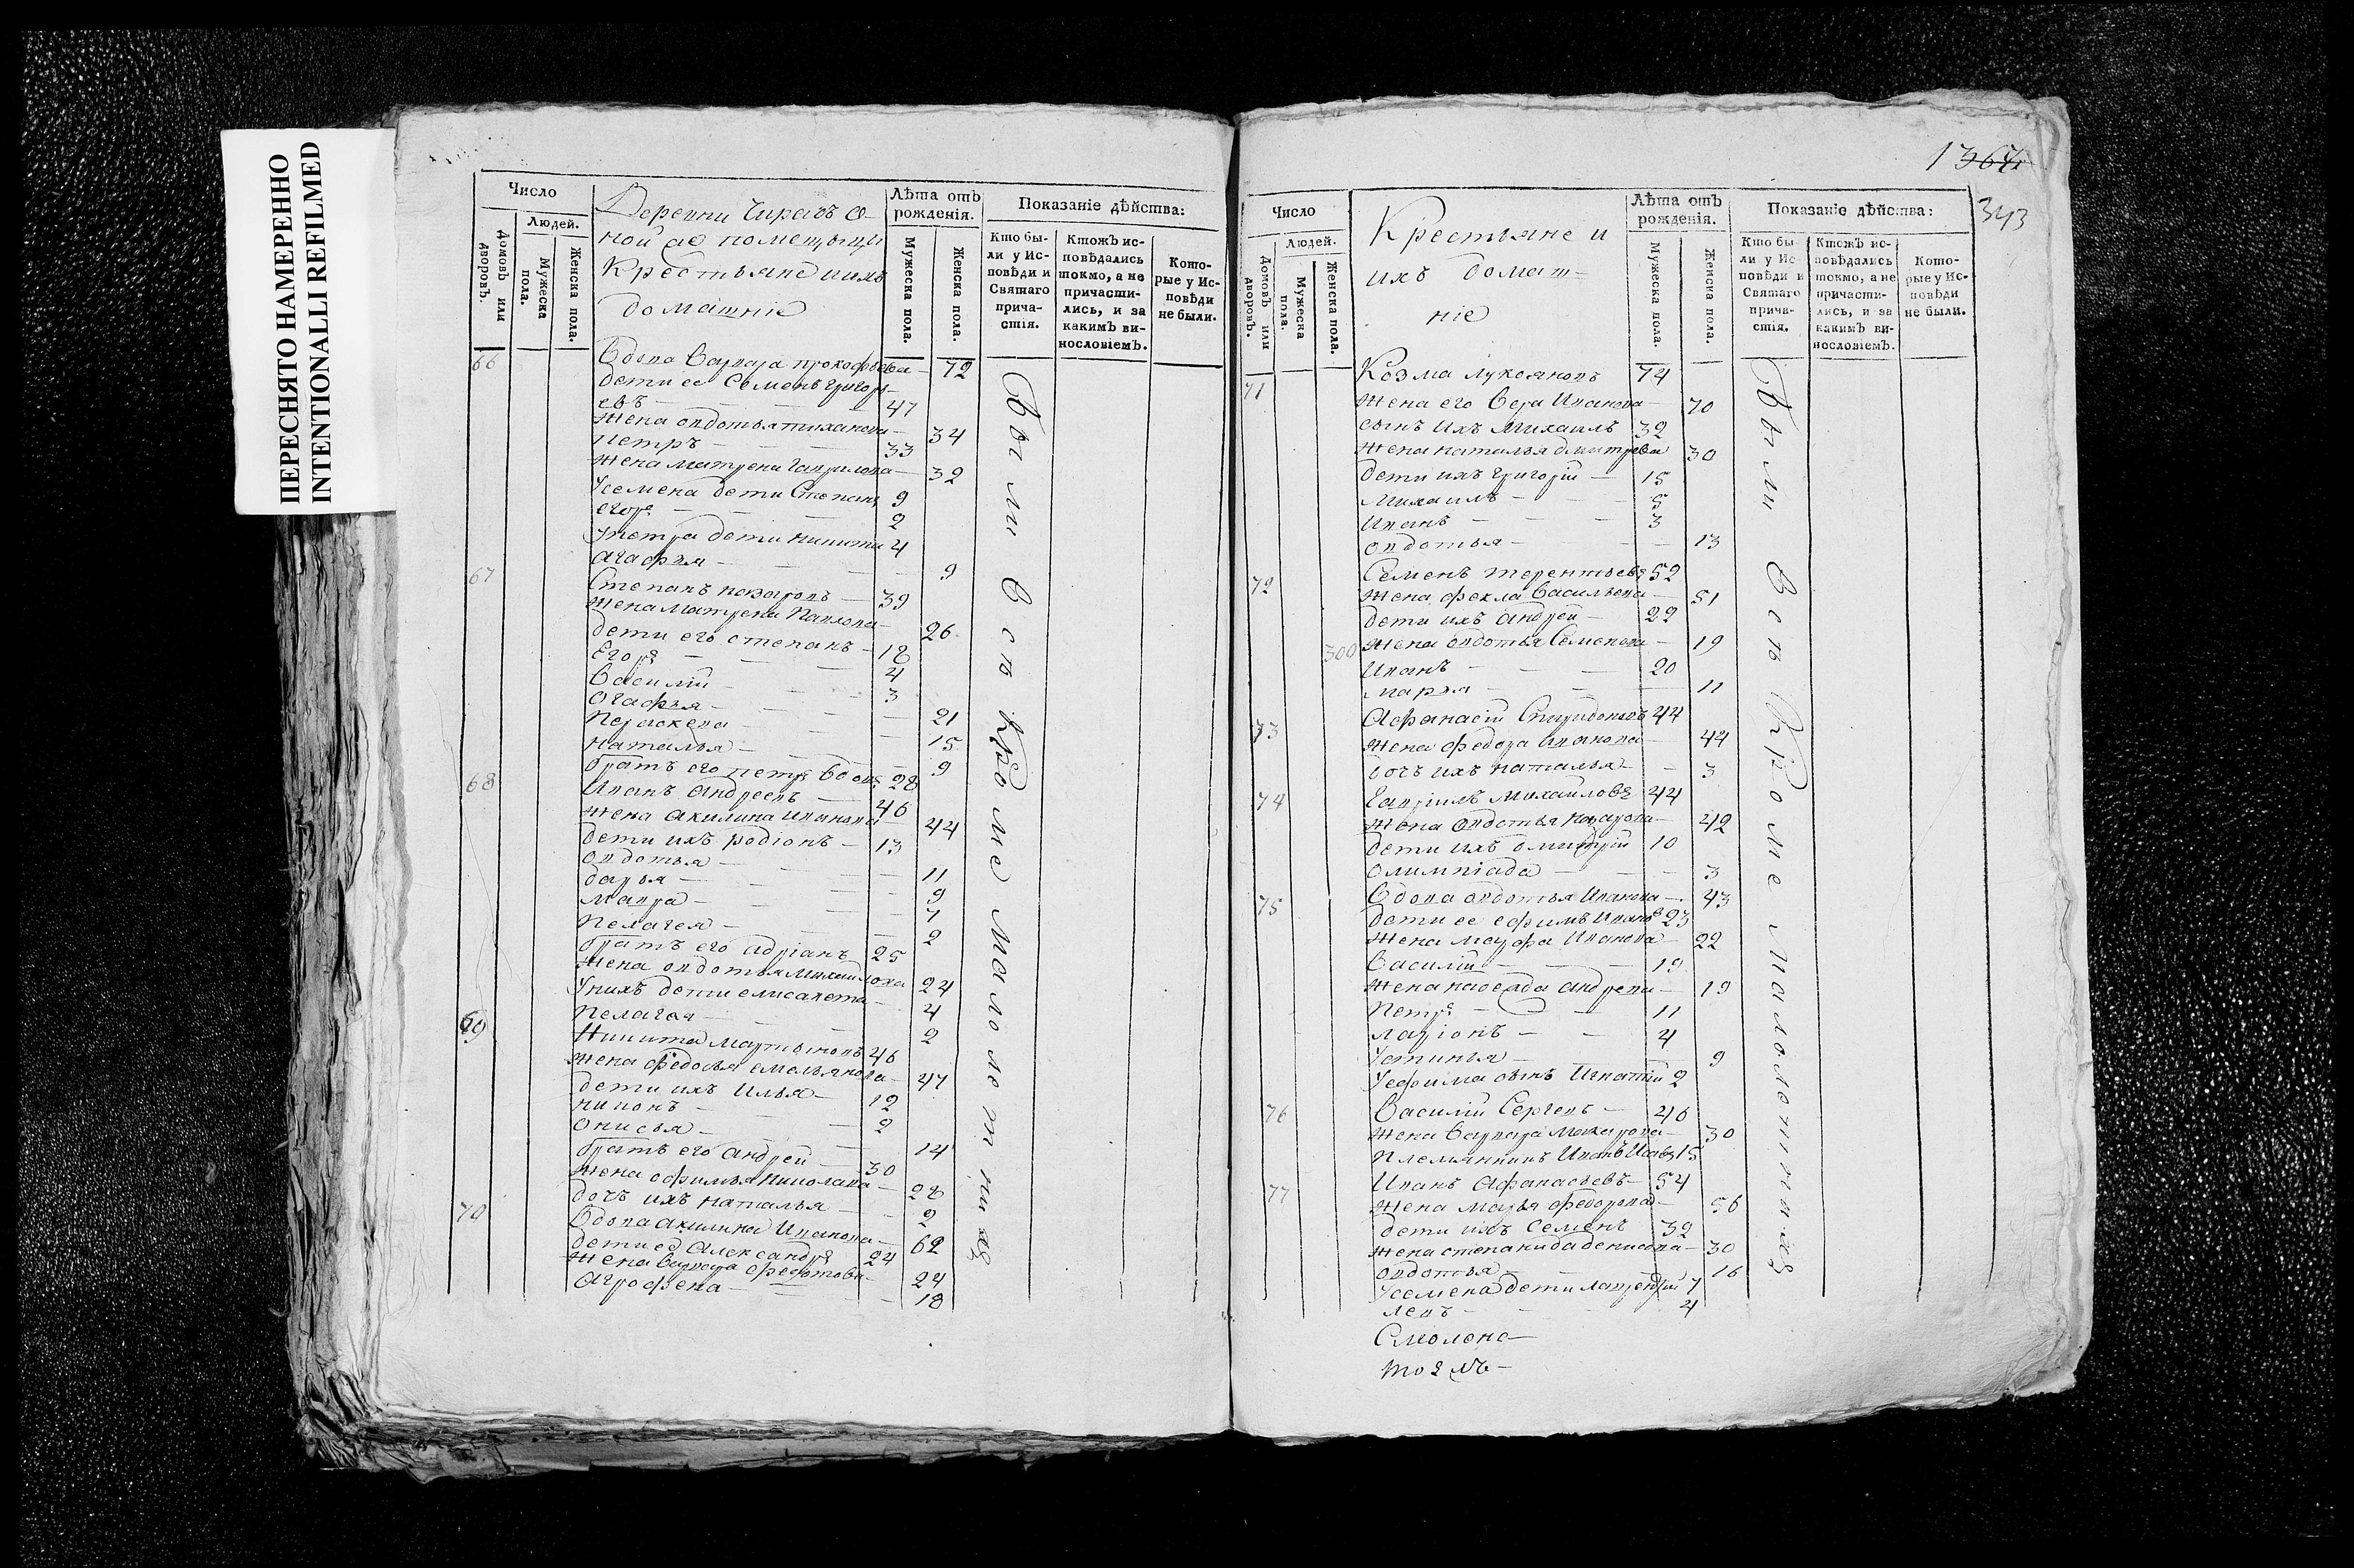 ПЕРЕСНЯТО НАМЕРЕННО
INTENTIONALLI REFILMED
Число
Людей.
Домовъ или дворовъ.
Мужеска пола.
Женска пола.
Деревни
ной ее помещицы
Крестьяне и ихъ
домашніе
Лѣта отъ рожденія.
Мужеска пола.
Женска пола.
Показаніе дѣйства:
Кто бы-
ли у Ис-
повѣди и
Святаго
прича-
стія.
Ктожъ ис-
повѣдались
токмо, а не
причасти-
лись, и за
какимъ ви-
нословіемъ.
Кото-
рые у Ис-
повѣди
не были.
66 Вдова Варвара прокофьева 72
дети ее Семенъ григорь
евъ 47
Жена овдотья тиханова 34
петръ 33
Жена матрена гаврилова 32
У семена дети Степанъ 9
егоръ 2
У петра дети никита 4
агафья 9
67 Степанъ назаровъ 39
Жена матрена Павлова 26
дети его степанъ 12
Егоръ 4
Василій 3
огафья 21
Параскева 15
наталья 9
братъ его петръ 28
68 Иванъ андреевъ 46
Жена акилина иванова 44
дети ихъ родіонъ 13
овдотья 11
дарья 9
мавра 7
пелагея 2
братъ его адріанъ 25
Жена овдотья Михайлова 24
У нихъ дети елисавета 4
пелагея 2
69 Никита мартыновъ 46
Жена федосья емельянова 47
дети ихъ Илья 12
никонъ 2
онисья 14
братъ его андрей 30
Жена офимья николаева 28
дочъ ихъ наталья 2
70 Вдова акилина Иванова 62
дети ее александръ 24
Жена варвара федотова 24
аграфена 18
Были все Кроме малолетнихъ
1364
343
Число
Людей.
Домовъ или дворовъ.
Мужеска пола.
Женска пола.
Крестьяне и
ихъ домаш-
ніе
Лѣта отъ рожденія.
Мужеска пола.
Женска пола.
Показаніе дѣйства:
Кто бы-
ли у Ис-
повѣди и
Святаго
прича-
стія.
Ктожъ ис-
повѣдались
токмо, а не
причасти-
лись, и за
какимъ ви-
нословіемъ.
Кото-
рые у Ис-
повѣди
не были.
71 Козма лукояновъ 74
Жена его вера Иванова 70
сынъ ихъ Михаилъ 32
Жена наталья дмитрева 30
дети ихъ григорій 15
Михаилъ 5
Иванъ 3
овдотья 13
72 Семенъ терентьевъ 52
Жена фекла Васильева 51
дети ихъ андрей 22
300 Жена овдотья Семенова 19
Иванъ 20
марья 11
73 Афанасій Спиридоновъ 44
Жена федора иванова 44
дочъ ихъ наталья 3
74 Гавріилъ Михайловъ 44
Жена овдотья назарова 42
дети ихъ дмитрій 10
олимпіада 3
75 Вдова овдотья Иванова 43
дети ее ефимъ Ивановъ 23
Жена марфа Иванова 22
Василій 19
Жена андрева 19
Петръ 11
ларіонъ 4
Устинья 9
У ефима сынъ Игнатій 2
76 Василій Сергевъ 40
Жена варвара макарова 30
племянникъ Иванъ 15
77 Иванъ афанасьевъ 54
Жена марья федорова 56
дети ихъ Семенъ 32
Жена степанида денисова 30
овдотья 16
У семена дети лаврентій 7
левъ 4
Были все Кроме малолетнихъ
Смоленс